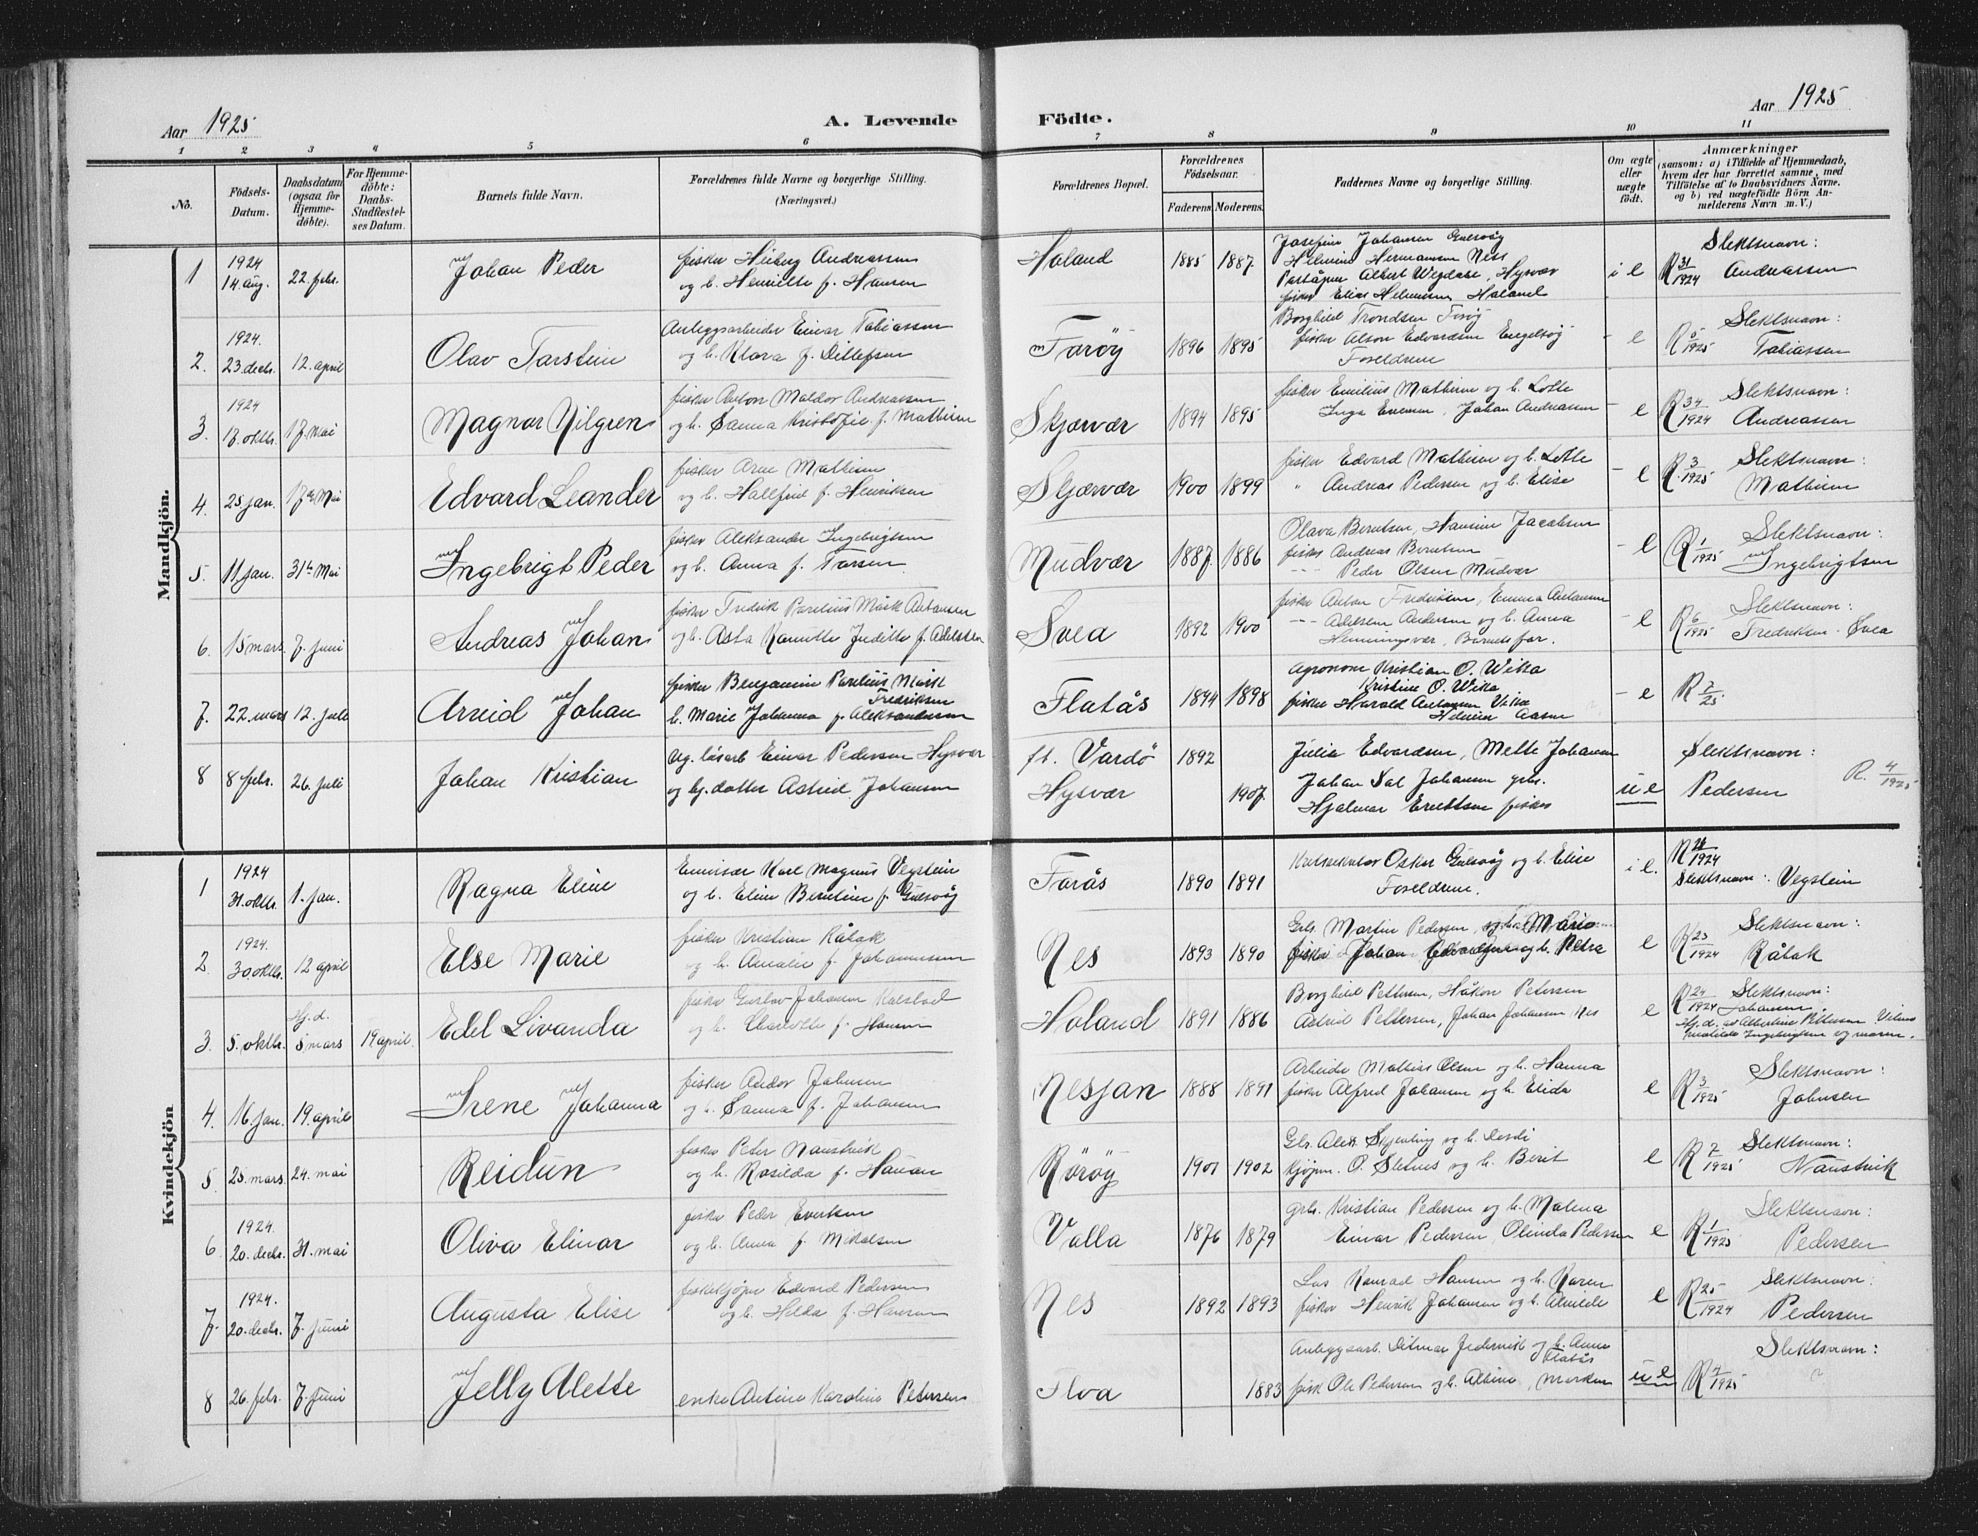 Aar 1925
A. Levende
Födte.
Aar 1925
1 2 3 4 5 6 7 8 9 10 11
No.
Födsels-
Datum.
Daabsdatum
(ogsaa for
Hjemme-
döbte).
For Hjemme-
döbte:
Daabs-
Stadfestel-
ses Datum.
Barnets fulde Navn.
Forældrenes fulde Navne og borgerlige Stilling.
(Næringsvei.)
Forældrenes Bopæl.
Forældrenes
Födselsaar.
Faderens. Moderens.
Faddernes Navne og borgerlige Stilling.
Om ægte
eller
uægte
födt.
Anmærkninger
(saasom: a) i Tilfælde af Hjemmedaab,
hvem der har forrettet samme, med
Tilföielse af to Daabsvidners Navne,
og b) ved uægtefödte Börn An-
melderens Navn m. V.)
Mandkjön.
1 1924 14. aug. 22. febr. Johan Peder
fisker Heiberg Andreassen
og h. Henriette f. Hansen
Høland 1885 1887
Josefine Johansen Gulsvåg
Helmine Hermansen Ness
Hysvær
fisker Elias Helmersen Høland
i e R 31/1924 Slektsnavn:
Andreassen
2. 1924. 23. decbr. 12. april Olav Torstein
Anleggsarbeider Einar Tobiassen
og h. Klara f. Ditlefsen
Forøy 1896 1895
Borghild Trondsen Forøy
fisker Alson Edvardsen Engelsøy
Foreldrene
- e R 5/1925 Slektsnavn:
Tobiassen
3. 1924 17. oktbr. 17. Mai Magnar Hilgren
fisker Anton Meldor Andreassen
og h. Sanna Kristofie f. Mathisen
Skjærvær 1894 1895
fisker Emilius Mathisen og h. Lotte
Inga Enersen, Johan Andreassen
- e R 34/1924 Slektsnavn:
Andreassen
4. 25 jan. 17de Mai Edvard Leander
fisker Arne Mathisen
og h. Hallfrid f. Henriksen
Skjærvær 1900 1899
fisker Edvard Mathisen og h. Lotte
" Andreas Pedersen og h. Elise
- e R. 3/1925 Slektsnavn:
Mathisen
5. 11 jan. 31te Mai Ingebrigt Peder
fisker Aleksander Ingebrigtsen
og h. Anna f. Torsen
Mudvær 1887 1886
Olava Berntsen, Hansine Jacobsen
fisker Andreas Berntsen
--- Peder Olsen Mudvær
- e R 1/1925 Slektsnavn:
Ingebrigtsen
6. 15 mars. 7. juni Andreas Johan
fisker Fredrik Parelius Mårk Antonsen
og h. Asta Kamilla Juditte f. Adelsten
Svea 1892 1900
fisker Anton Fredriksen, Emma Antonsen
--- Adelsten Andersen og h. Anna
Henningsvær, Barnets far.
- e R 6/1925 Slektsnavn:
Fredriksen - Svea
7. 22. mars 12. juli Arvid Johan
fisker Benjamin Parelius Mårk
Fredriksen
h. Marie Johanna f. Aleksandersen
Flatås 1894 1898
Agronom Kristian O. Wika
Kristine O. Wika
fisker Harald Antonsen Vika
Helmine Aasen
- e R 7/25
8 8 febr. 26. juli Johan Kristian
Ug. løsarb Einar Pedersen Hysvær
og hj. datter Astrid Johansen
ft. Vardø 1892
Hysvær 1907
Julie Edvardsen, Mette Johansen
Johan Dal Johansen grbr.
Hjalmar Erektsen fisker
u e Slektsnavn:
Pedersen R. 4/1925
Kvindekjön
1 1924 31. oktbr. 1. jan. Ragna Eline
Emissær Karl Magnus Vegstein
og h. Eline Berntine f. Gulsvåg
Forås 1890 1891
Oskar Gulsvåg og h. Elise
Foreldrene.
i e. R 28/1924
Slektsnavn: Vegstein
2. 1924. 30. oktbr. 12 april Else Marie
fisker Kristian Råbak
og h. Amalie f. Johannessen
Nes 1893 1890
Grb. Martin Pedersen, og h. Marie
fisker Johan Edvardsen og h. Petra
e R 23/1924 Slektsnavn:
Råbak
3. 5. oktbr. Hj. d. 5 mars 19 april. Edel Livanda
fisker Gustav Johansen Kalstad
og h. Charlotte f. Hansen
Høland 1891 1886
Borghild Pettersen, Håkon Petersen
Astrid Pettersen, Johan Johansen Nes
e R 24/1924 Slektsnavn:
Johansen.
Hj. d. av Albertine Pettersen.
Ingebrigtsen og moren.
4. 16 jan. 19. april Irene Johanna
fisker Andor Johnsen
og h. Sanna f. Johansen
Nesjan 1888 1891
Arbeider Mathias Olsen og h. Hanna
fisker Alfred Johansen og h. Elida
e R 3/1925 Slektsnavn:
Johnsen
5. 25. mars. 24. mai Reidun
fisker Peter Naustvik
og h. Rosilda f. Hansen
Rörøy 1901 1902
Grb. Aleks. og h.
kjøpm. O. Sletnes og h. Berit
e R 7/1925 Slektsnavn:
Naustvik
6. 1924. 20. decbr. 31. mai Oliva Elinor
fisker Peder Evertsen
og h. Anna f. Mikalsen
Valla 1876 1879
grb. Kristian Pedersen og h. Malena
Einar Pedersen, Olinda Pedersen
e R 1/1925 Slektsnavn:
Pedersen
7. 1924. 20. decbr. 7. juni Augusta Elise
fiskekjøper Edvard Pedersen
og h. Hilda f. Hansen
Nes 1892 1893
Los Konrad Hansen og h. Karen
fisker Henrik Johansen og h. Alvilde
e R 25/1924 Slektsnavn:
Pedersen
8 26. febr. 7. juni Jelly Alette
enke Antine Karoline Petersen
Ilva 1883
Anleggsarb. Ditmar og h. Anna
Flatås
fisk Ole Pedersen og h. Albine, Marken
u e R 7/1925 Slektsnavn:
?